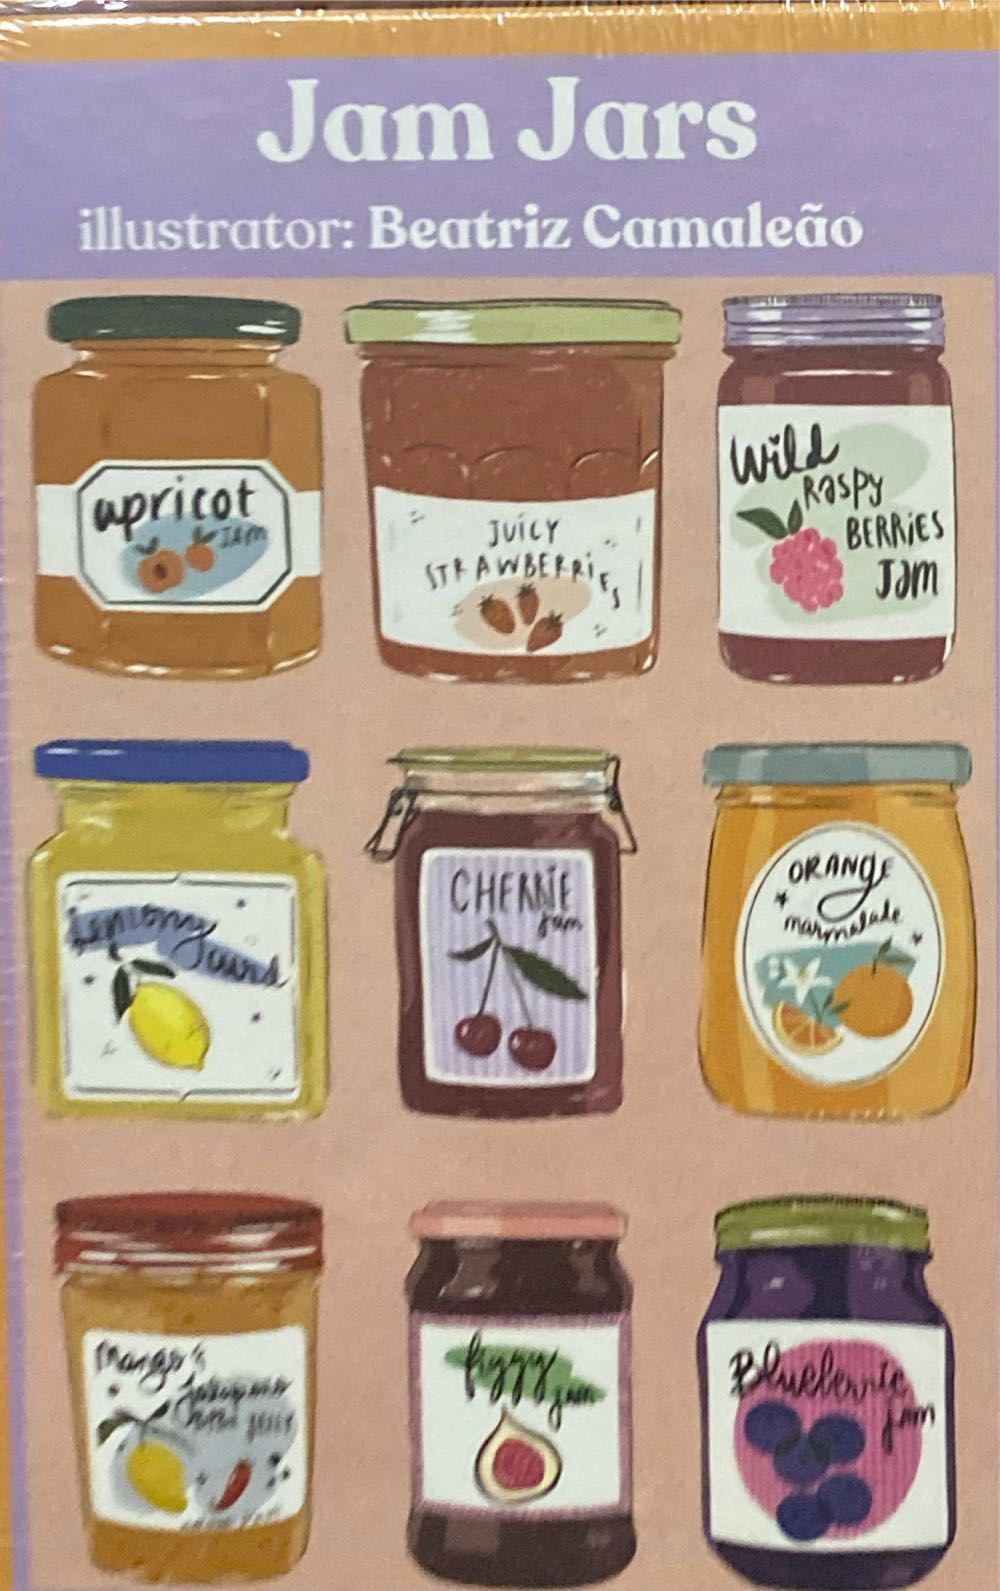 Jam Jars
illustrator: Beatriz Camaleão
apricot
JAM
JUICY
STRAWBERRIES
Wild
RASPY
BERRIES
JAM
Lemony
curd
CHERRIE
jam
ORANGE
marmalade
Mango's
Jalapeno
figgy
jam
Blueberrie
jam